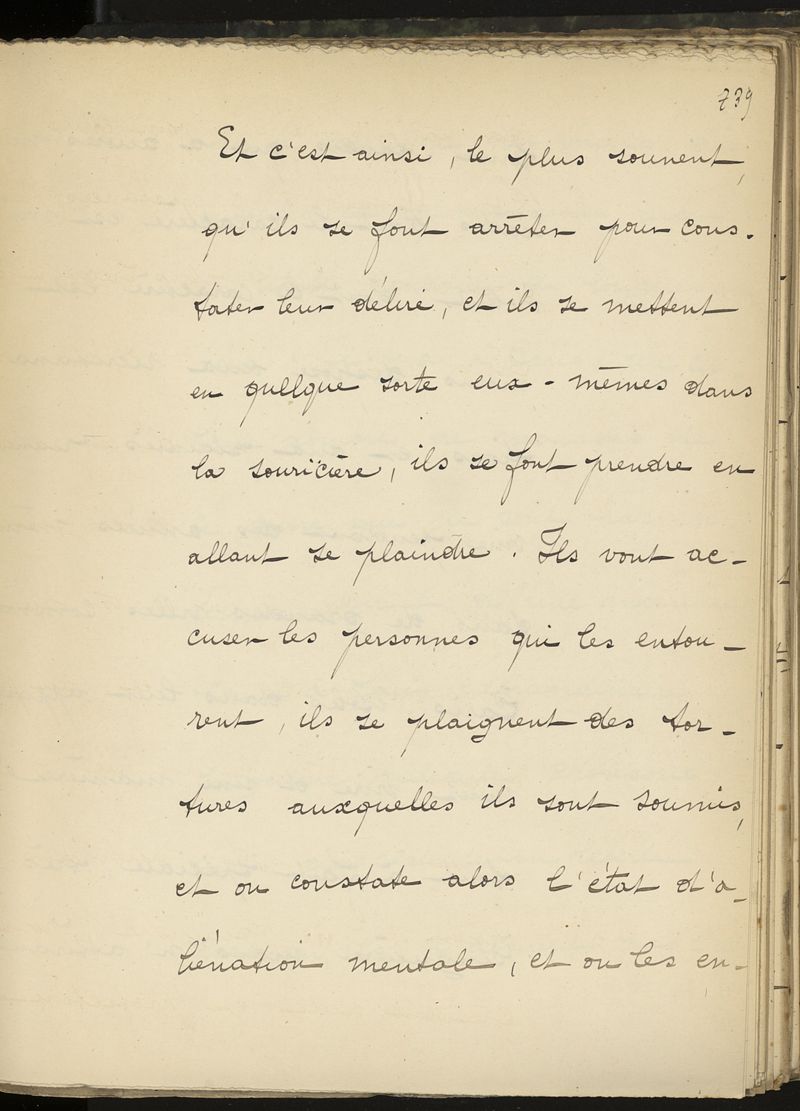 739
Et c'est ainsi, le plus souvent,
qu'ils se font arrêter pour cons-
tater leur délire, et ils se mettent
en quelque sorte eux-mêmes dans
la souricière, ils se font prendre en
allant se plaindre. Ils vont ac-
cuser les personnes qui les entou-
rent, ils se plaignent des tor-
tures auxquelles ils sont soumis,
et on constate alors l'état d'a-
liénation mentale, et on les en-